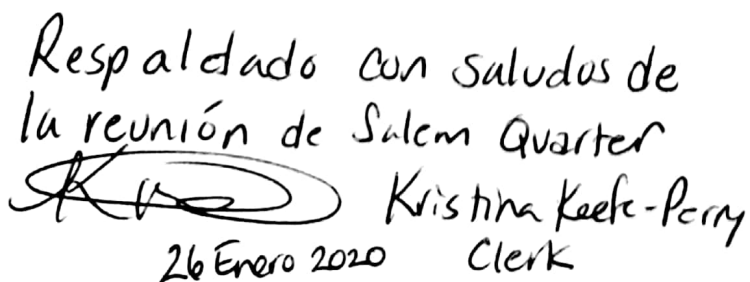 Respaldado con saludos de
la reunión de Salem Quarter
Kristina Keefe-Perry
26 Enero 2020 Clerk